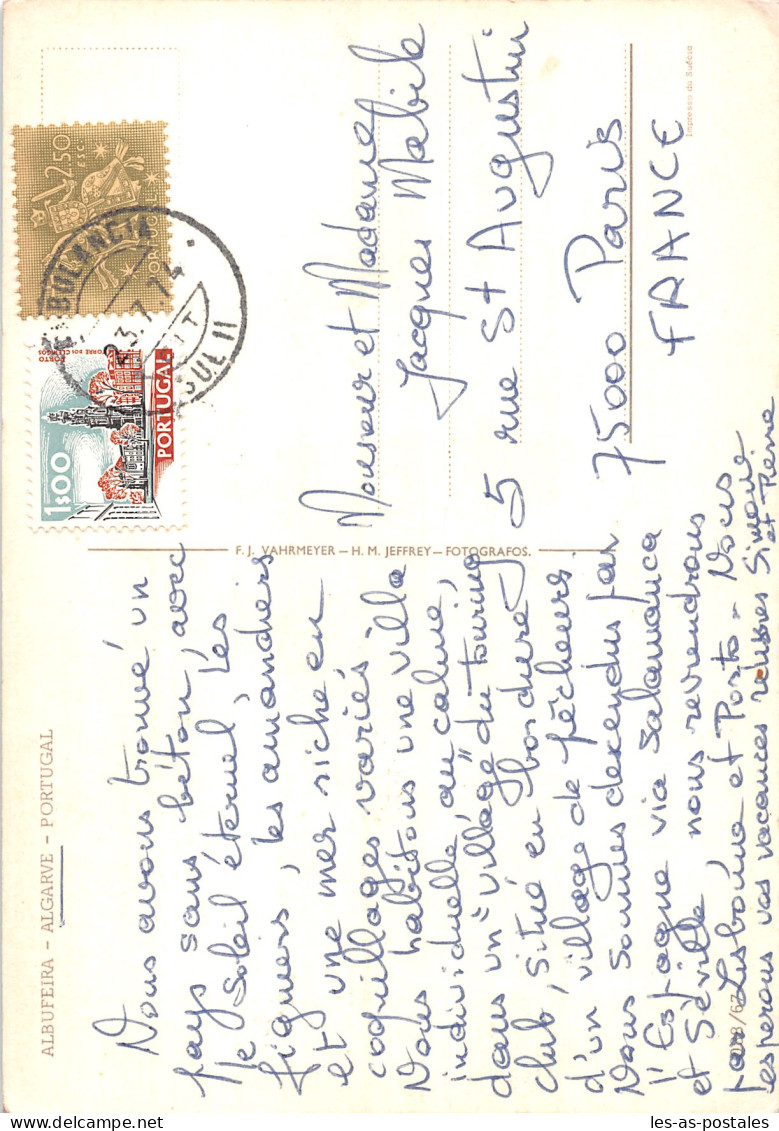 ALBUFEIRA - ALGARVE - PORTUGAL
Nous avons trouvé un
pays sans béton, avec
le soleil éternel, les
figuiers, les amandiers
et une mer riche en
coquillages variés
Nous habitons une villa
individuelle, au calme,
dans un "village" du touring
club, situé en bordure
d'un village de pêcheurs.
Nous sommes descendus par
l'Espagne via Salamanca
et Séville, nous reviendrons
par Lisbonne et Porto - Nous
esperons vos vacances réussies Simone
et Pierre
F. J. VAHRMEYER - H. M. JEFFREY - FOTOGRAFOS.
2,50
ESC.
1$00
PORTO
TORRE DOS CLÉRIGOS
PORTUGAL
AMBULANCIA
23.7.74
SUL II
Monsieur et Madame
Jacques Mabile
5 rue St Augustin
75000 Paris
FRANCE
Impresso da Suécia
les-as-postales